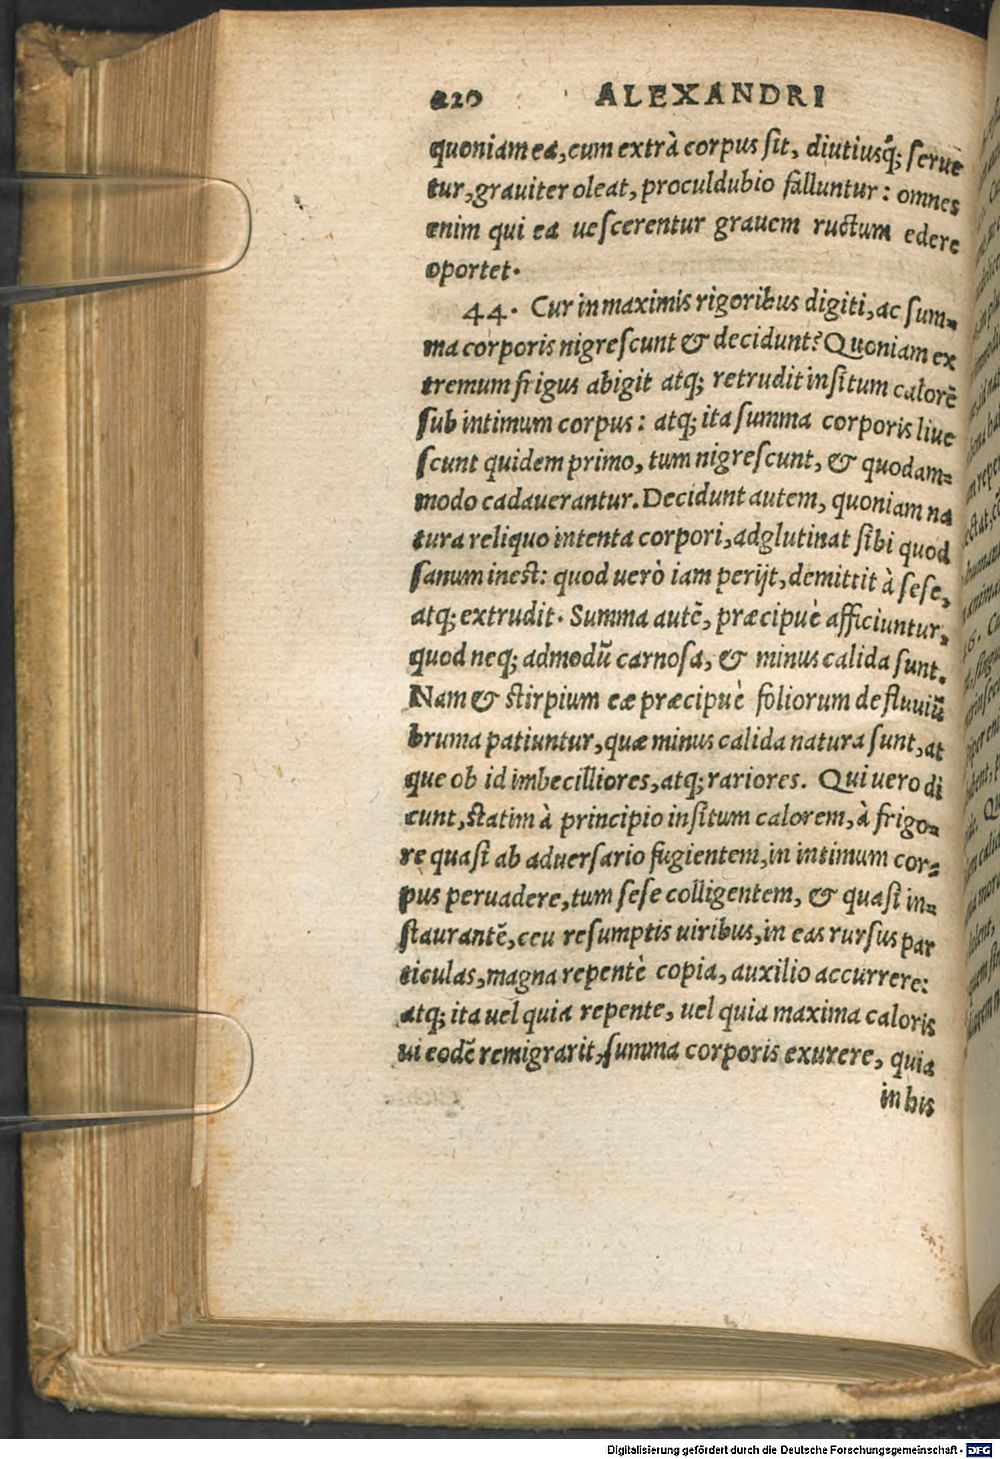 220 ALEXANDRI
quoniam ea, cum extrà corpus ſit, diutiusq́; ſeruē
tur, grauiter oleat, proculdubio falluntur: omnes
enim qui ea ueſcerentur grauem ructum edere
oportet.
44. Cur in maximis rigoribus digiti, ac ſum-
ma corporis nigreſcunt & decidunt? Quoniam ex
tremum frigus abigit atq; retrudit inſitum calorē
ſub intimum corpus: atq; ita ſumma corporis liue
ſcunt quidem primo, tum nigreſcunt, & quodam-
modo cadauerantur. Decidunt autem, quoniam na
tura reliquo intenta corpori, adglutinat ſibi quod
ſanum ineſt: quod uerò iam perijt, demittit à ſeſe,
atq; extrudit. Summa autē, præcipuè afficiuntur,
quod neq; admodū carnoſa, & minus calida ſunt.
Nam & ſtirpium eæ præcipuè foliorum defluuiū
bruma patiuntur, quæ minus calida natura ſunt, at
que ob id imbecilliores, atq; rariores. Qui uero di
cunt, ſtatim à principio inſitum calorem, à frigo-
re quaſi ab aduerſario fugientem, in intimum cor-
pus peruadere, tum ſeſe colligentem, & quaſi in-
ſtaurantē, ceu reſumptis uiribus, in eas rurſus par
ticulas, magna repentè copia, auxilio accurrere:
atq; ita uel quia repente, uel quia maxima caloris
ui eodē remigrarit, ſumma corporis exurere, quia
in his
Digitalisierung gefördert durch die Deutsche Forschungsgemeinschaft - DFG